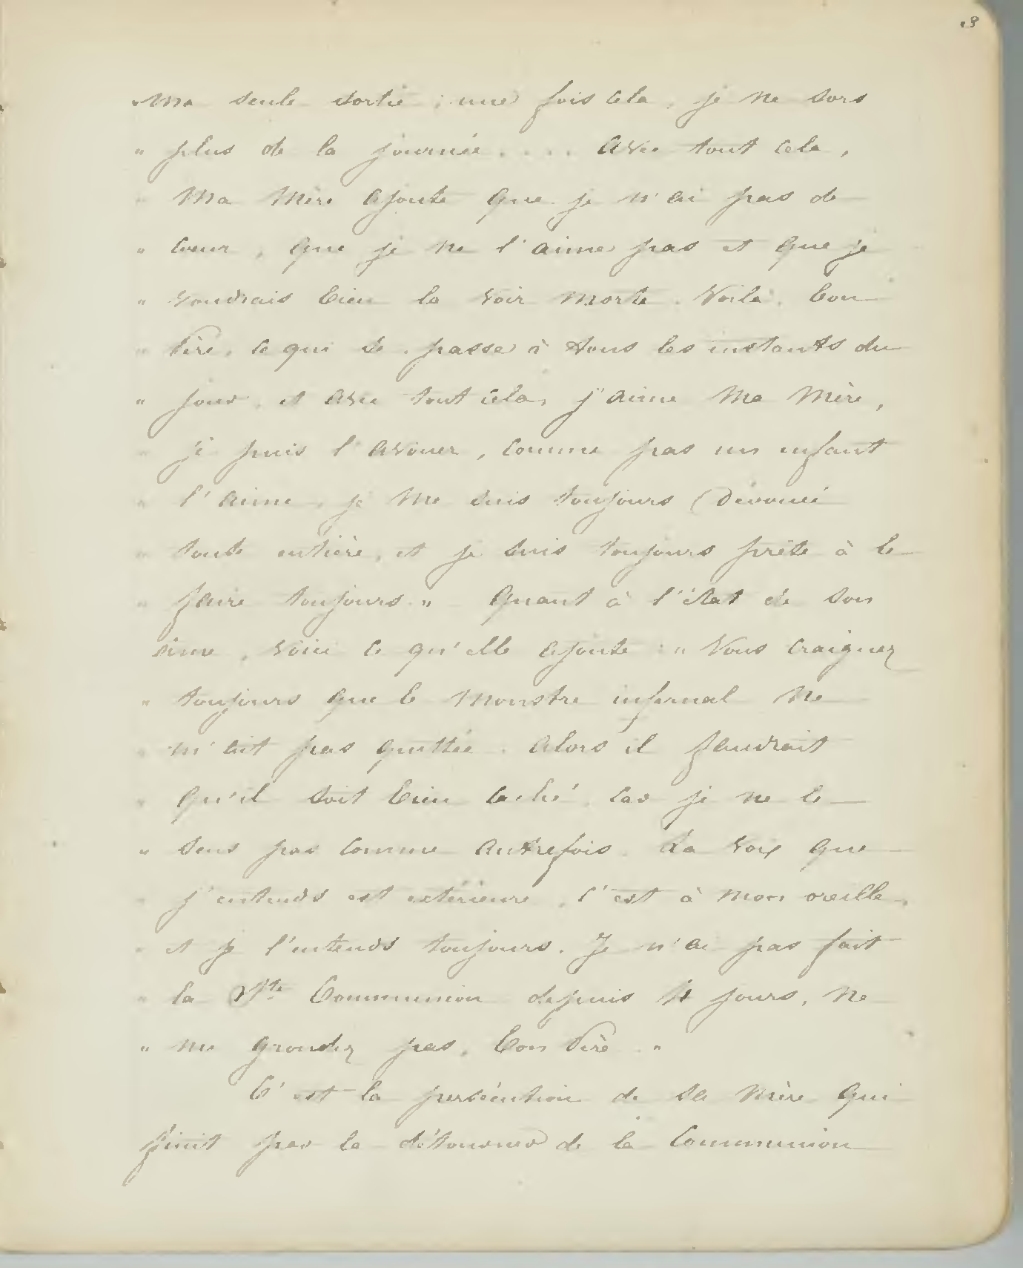 "Ma seule sortie ; une fois cela, je ne sors
" plus de la journée .... Avec tout cela,
" Ma Mère ajoute que je n'ai pas de
" Cœur, que je ne l'aime pas et que je
" voudrais bien la voir morte. Voilà, bon
" Père, ce qui se passe à tous les instants du
" jour, et avec tout cela, j'aime Ma Mère,
" je puis l'avouer, comme pas un enfant
" l'aime, je me suis toujours dévouée
" toute entière, et je suis toujours prête à le
" faire toujours." Quant à l'état de son
âme, voici ce qu'elle ajoute : " Vous craignez
" toujours que le Monstre infernal ne
" m'ait pas quittée. Alors il faudrait
" qu'il soit bien caché, car je ne le
" sens pas comme autrefois. La voix que
" j'entends est extérieure, c'est à mon oreille,
" et je l'entends toujours. Je n'ai pas fait
" la Ste Communion depuis jours, ne
" me grondez pas, bon Père."
C'est la persécution de sa Mère qui
finit par la détourner de la Communion